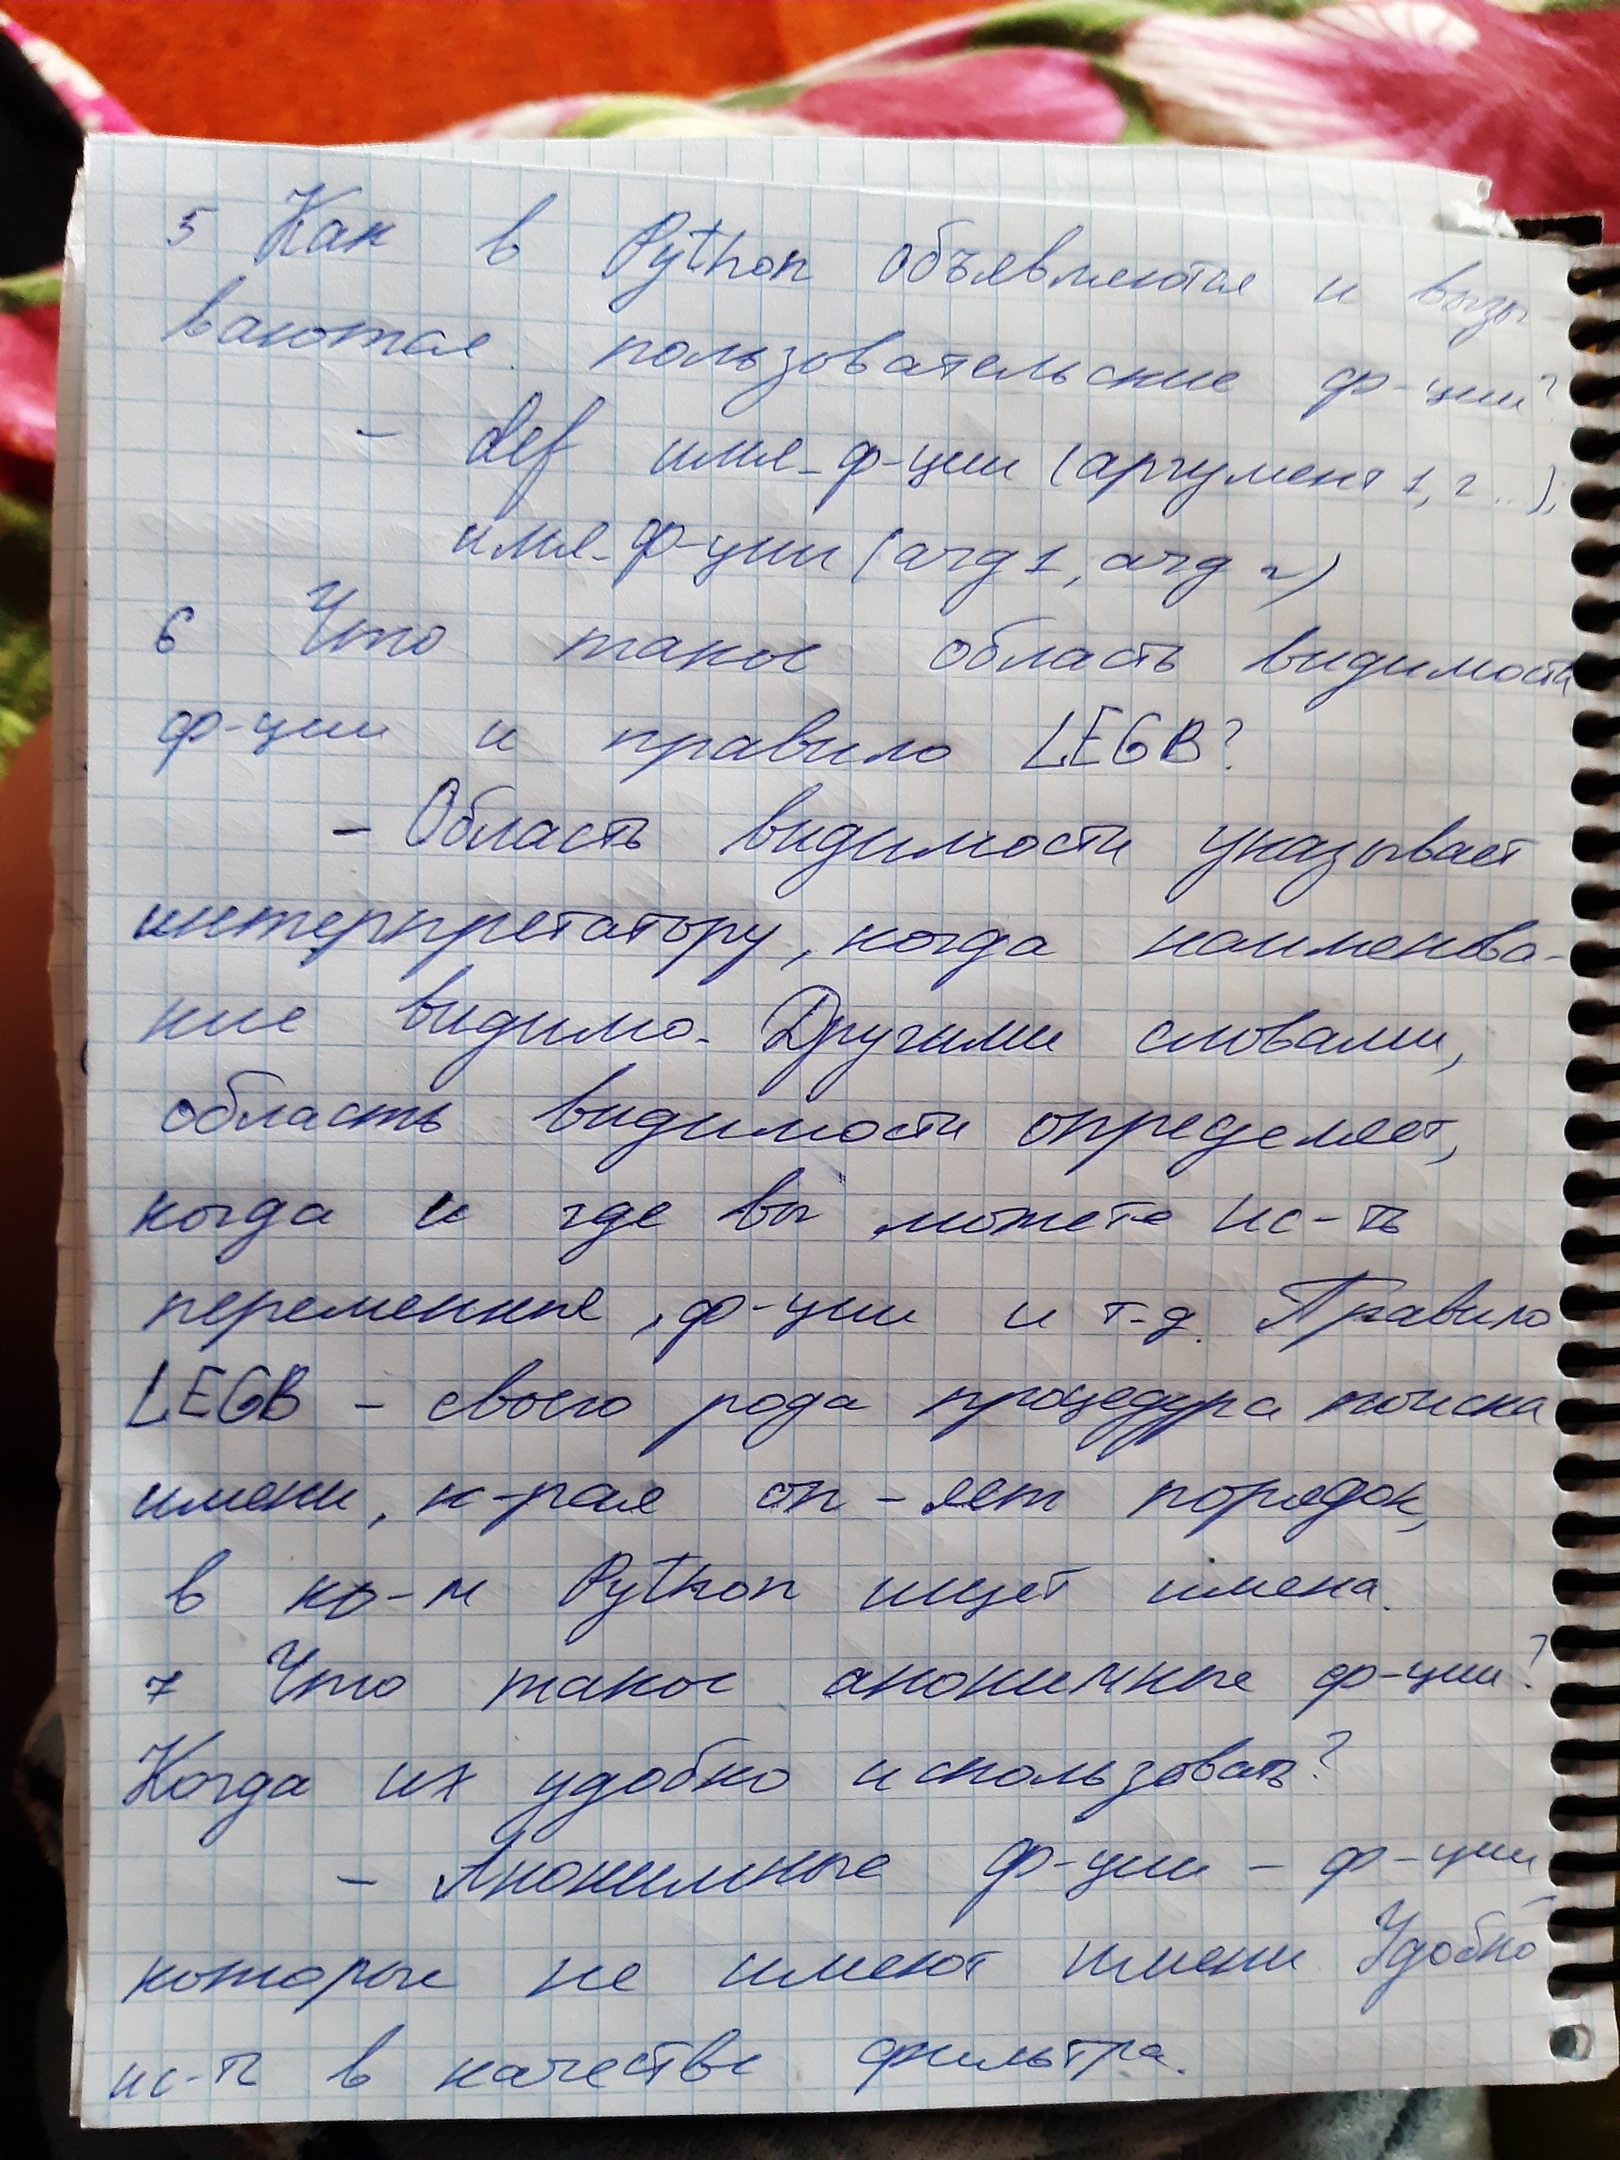 5 Как в Python объявляются и вызы-
ваются пользовательские ф-ции?
- def имя_ф-ции (аргумент 1, 2 ...):
имя_ф-ции (arg 1, arg 2)
6 Что такое область видимости
ф-ции и правило LEGB?
- Область видимости указывает
интерпретатору, когда наименова-
ние видимо. Другими словами,
область видимости определяет,
когда и где вы можете ис-ть
переменные, ф-ции и т.д. Правило
LEGB - своего рода процедура поиска
имени, к-рая оп-яет порядок,
в ко-м Python ищет имена.
7 Что такое анонимные ф-ции?
Когда их удобно использовать?
- Анонимные ф-ции - ф-ции
которые не имеют имени Удобно
ис-ть в качестве фильтра.